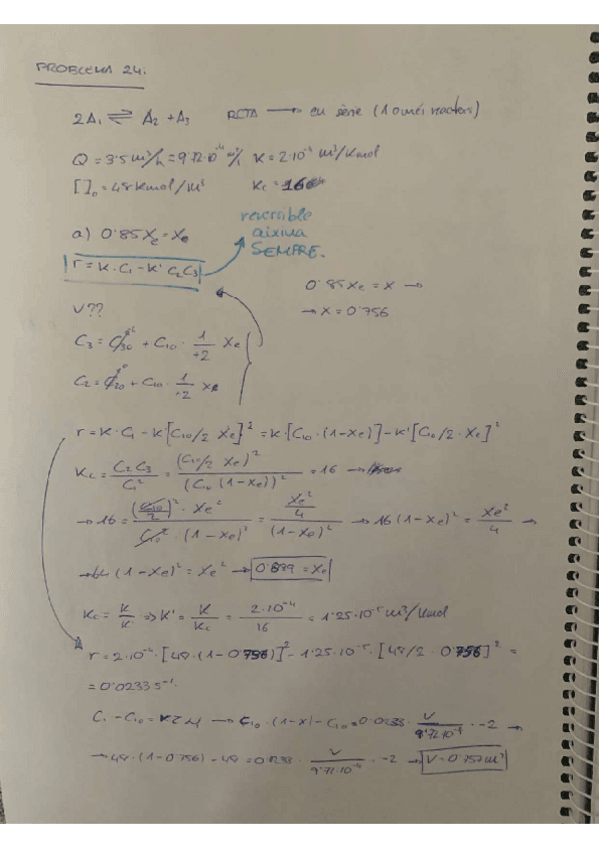 PROBLEMA 24:
2A₁ ⇌ A₂ + A₃ RCTA → en sèrie (1 o més reactors)
Q = 3'5 m³/h = 9'72·10⁻⁴ m³/s K = 2·10⁻⁴ m³/Kmol
[ ]₀ = 48 Kmol/m³ Kc = 16
reversible
així va
SEMPRE.
a) 0'85 Xe = Xe
r = K·C₁ - K' C₂C₃
0'85 Xe = X →
→ X = 0'756
V??
C₃ = C₃₀ + C₁₀ · 1/+2 Xe
C₂ = C₂₀ + C₁₀ · 1/+2 Xe
r = K·C₁ - K'[C₁₀/2 Xe]² = K·[C₁₀·(1-Xe)] - K'[C₁₀/2 · Xe]²
Kc = C₂C₃/C₁² = (C₁₀/2 Xe)²/(C₁₀ (1-Xe))² = 16 →
→ 16 = (C₁₀/2)² · Xe²/C₁₀² · (1-Xe)² = Xe²/4/(1-Xe)² → 16(1-Xe)² = Xe²/4 →
→ 64 (1-Xe)² = Xe² → 0'889 = Xe
Kc = K/K' ⇒ K' = K/Kc = 2·10⁻⁴/16 = 1'25·10⁻⁵ m³/Kmol
r = 2·10⁻⁴·[48·(1-0'756)]² - 1'25·10⁻⁵·[48/2 · 0'756]² =
= 0'0233 s⁻¹.
C₁ - C₁₀ = r τ γ → C₁₀·(1-X) - C₁₀ = 0'0233 · V/9'72·10⁻⁴ · -2 →
→ 48·(1-0'756) - 48 = 0'0233 · V/9'72·10⁻⁴ · -2 → V = 0'757 m³